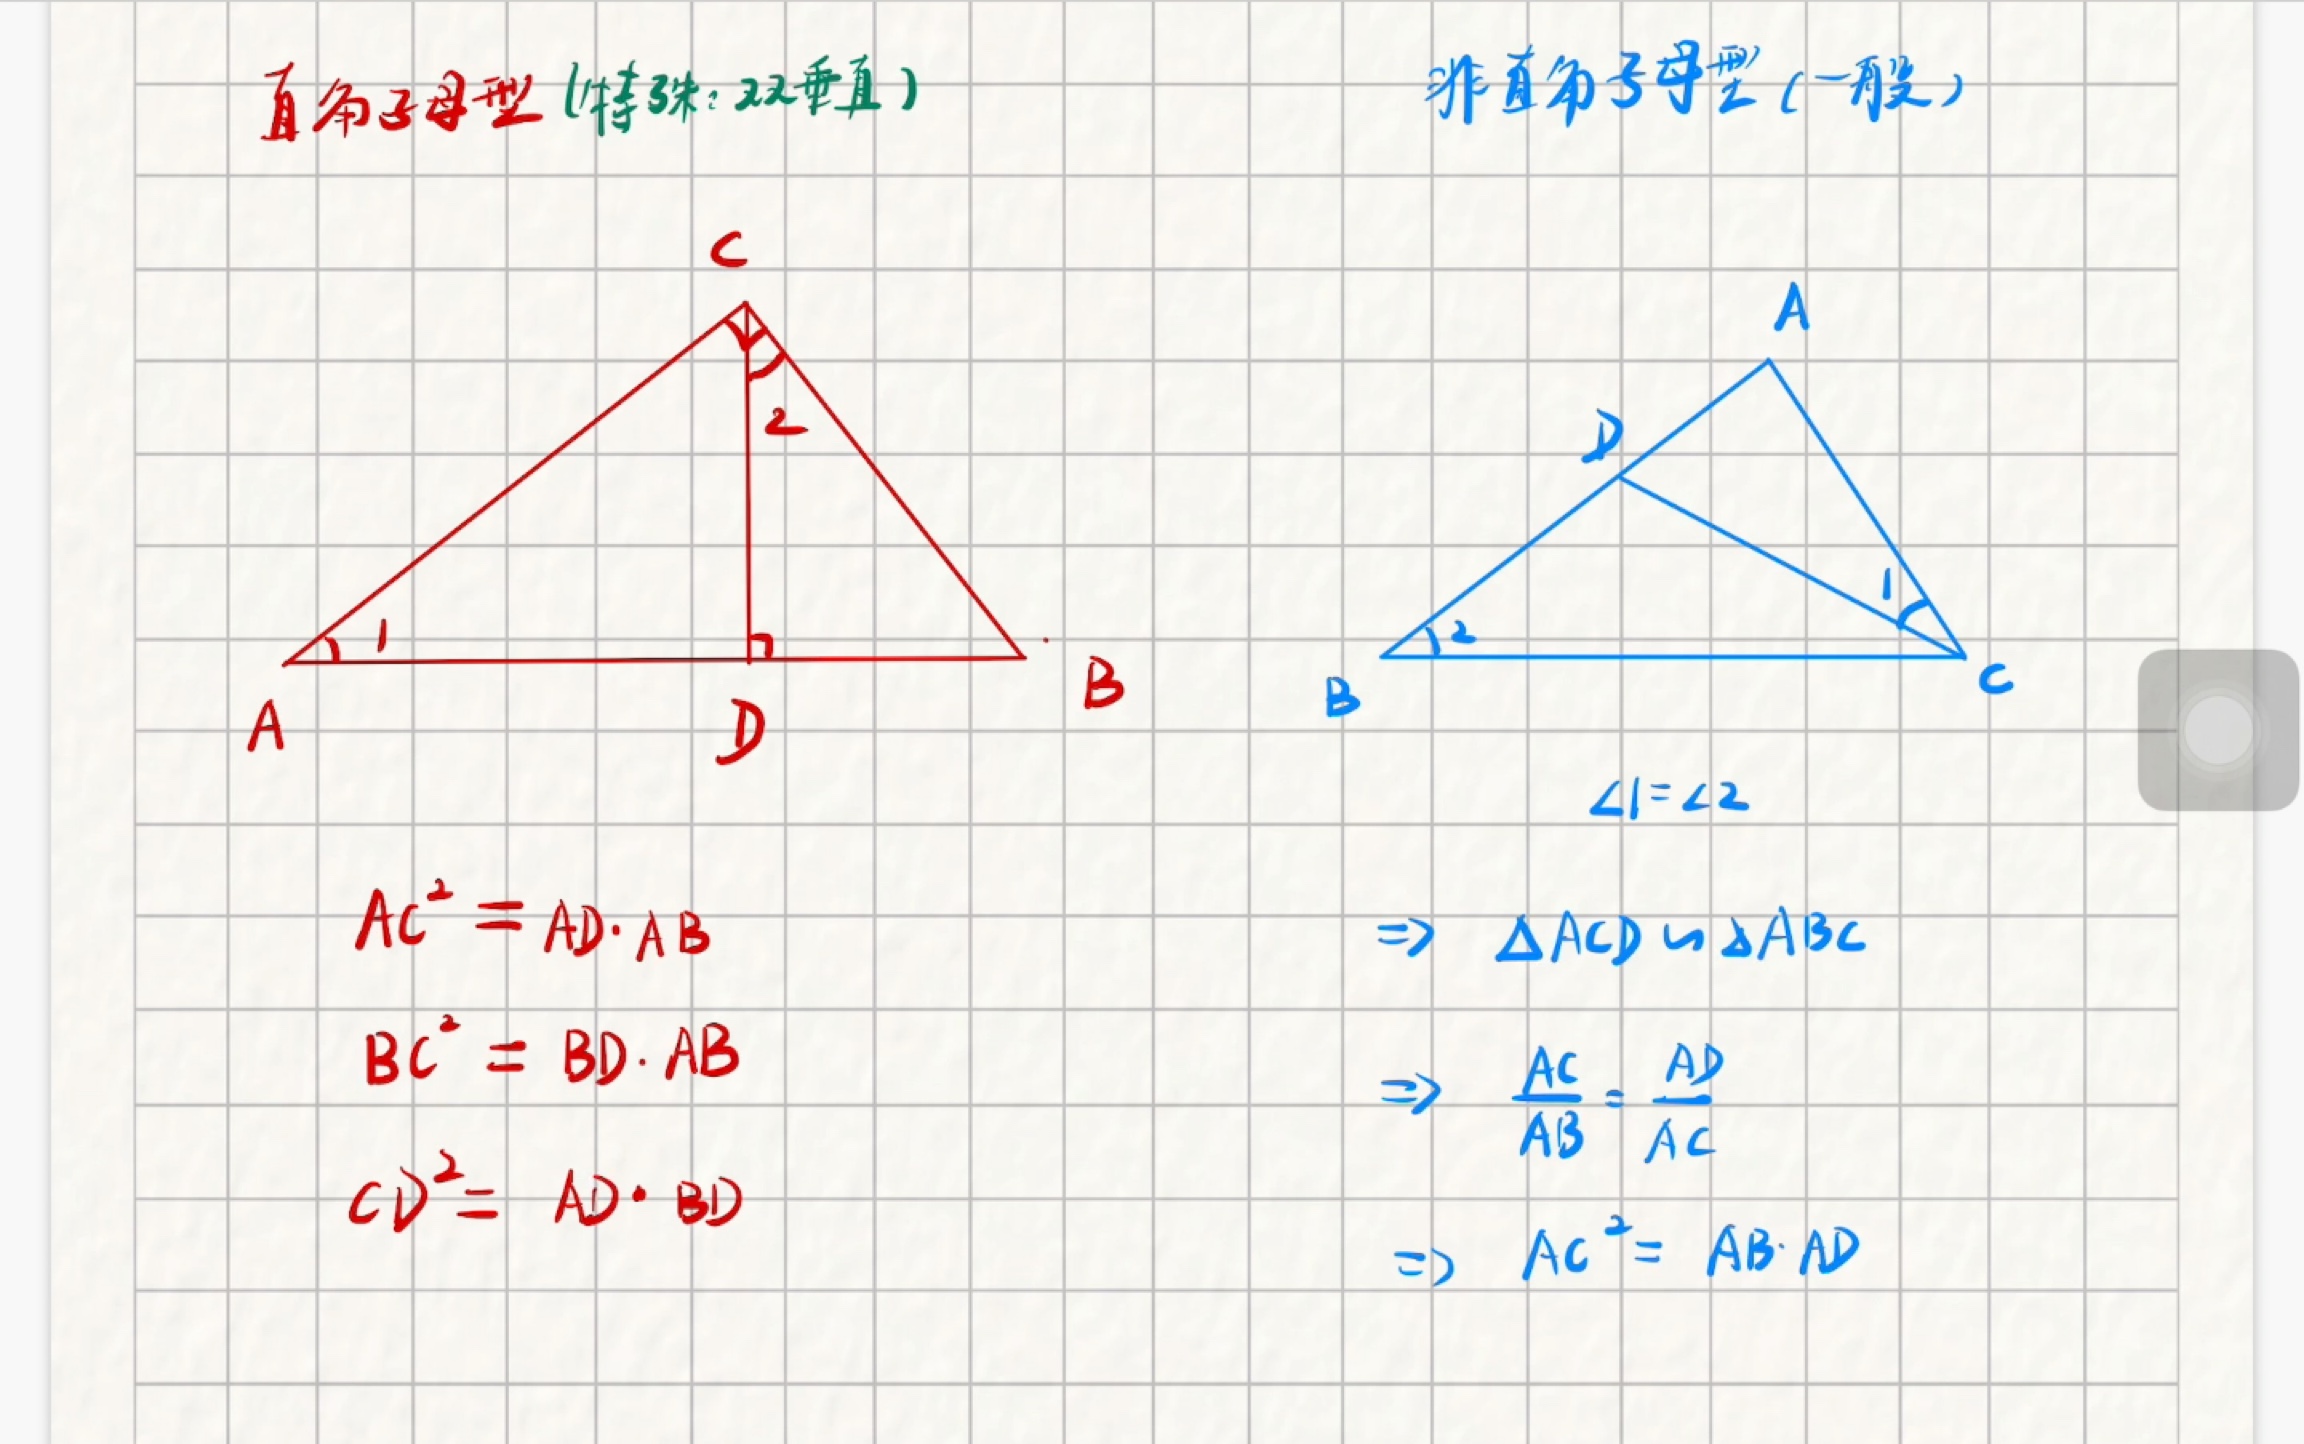 直角子母型(特殊:双垂直)
C
2
1
A
D
B
AC² = AD·AB
BC² = BD·AB
CD² = AD·BD
非直角子母型(一般)
A
D
1
2
B
C
∠1=∠2
⇒ △ACD ∽ △ABC
⇒ AC/AB = AD/AC
⇒ AC² = AB·AD